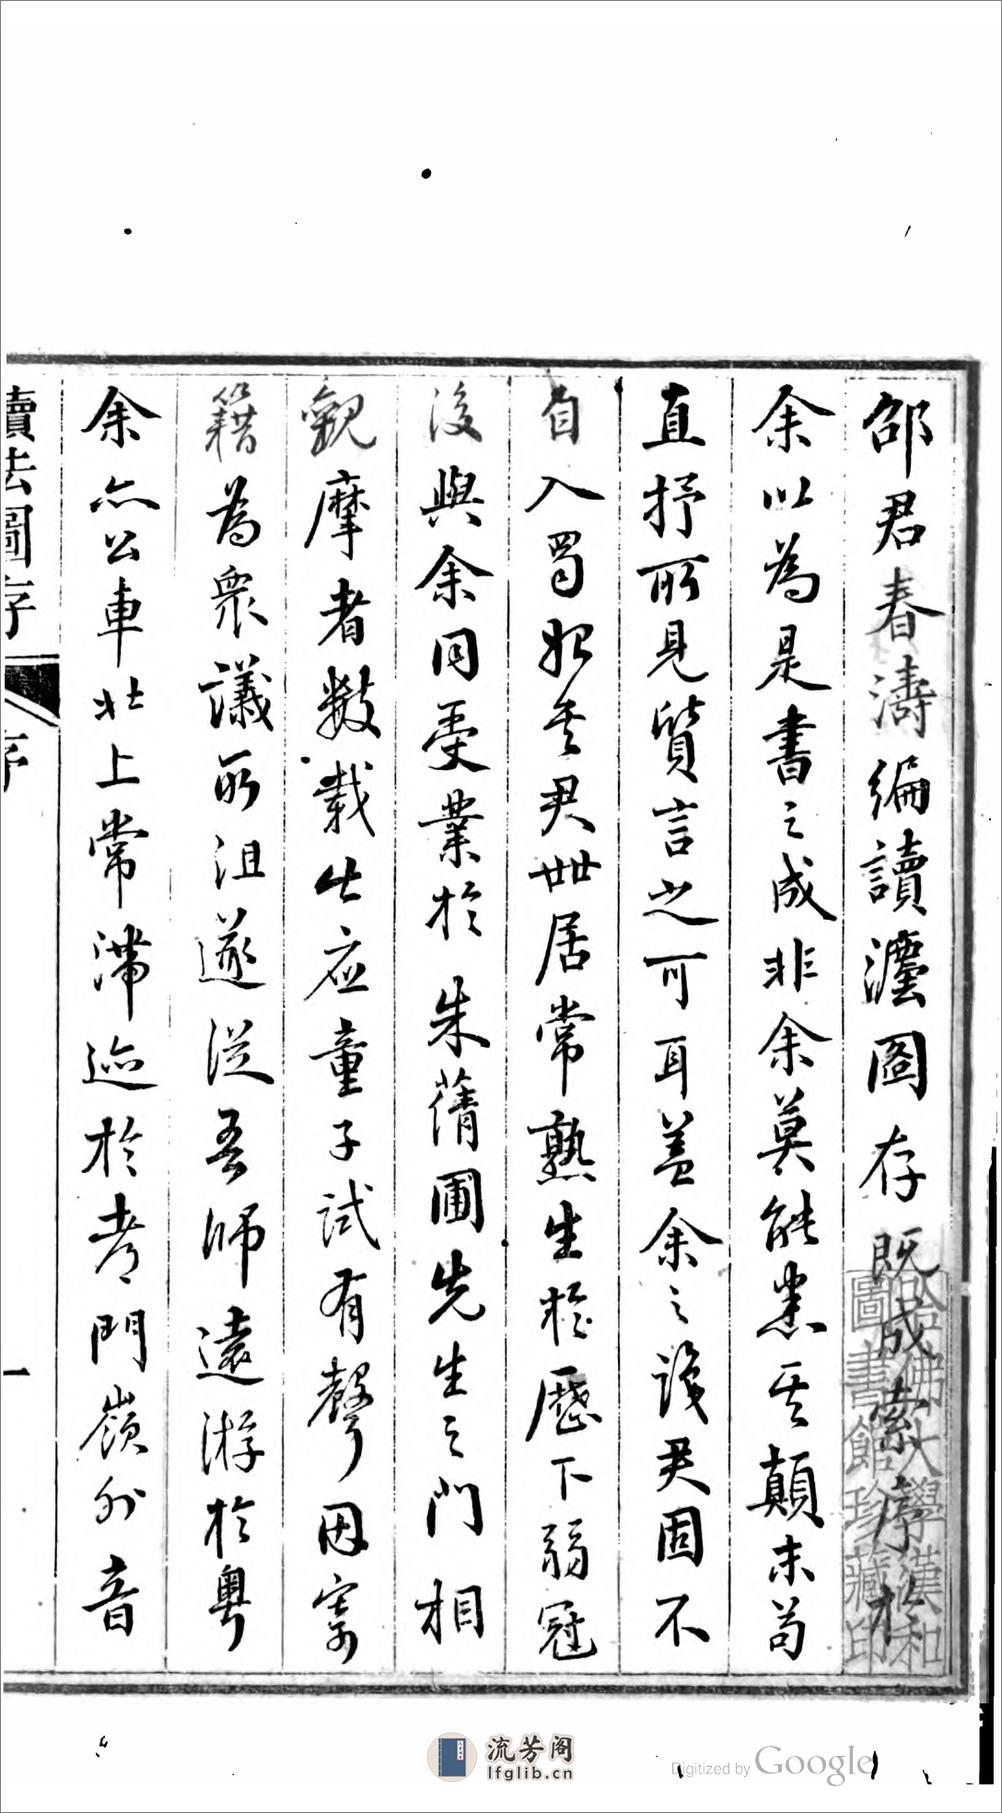 邵君春濤編讀灋圖存既成索序於
余以為是書之成非余莫能悉其顛末苟
直抒所見質言之可耳蓋余之識君固不
自入蜀始矣君世居常熟生於歷下弱冠
後與余同受業於朱蒨圃先生之門相
觀摩者數載出應童子試有聲因寄
籍為眾議所沮遂從吾師遠游於粵
余亦公車北上常滯迹於都門嶺外音
讀法圖存
序
一
哈佛大學漢和圖書館珍藏印
流芳阁
lfglib.cn
Digitized by Google